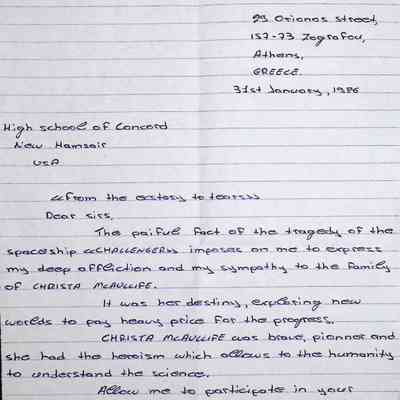 29 Orionos street,
157-73 Zografou,
Athens,
GREECE.
31st January, 1986
High school of Concord
New Hamsair
USA
<<From the ecstasy to tears>>
Dear sirs,
The paiful fact of the tragedy of the
spaceship <<CHALLENGER>> imposes on me to express
my deep affliction and my sympathy to the family
of CHRISTA McAULLIFE.
It was her destiny, exploring new
worlds to pay heavy price for the progress.
CHRISTA McAULLIFE was brave, pionner and
she had the heroism which allows to the humanity
to understand the science.
Allow me to participate in your